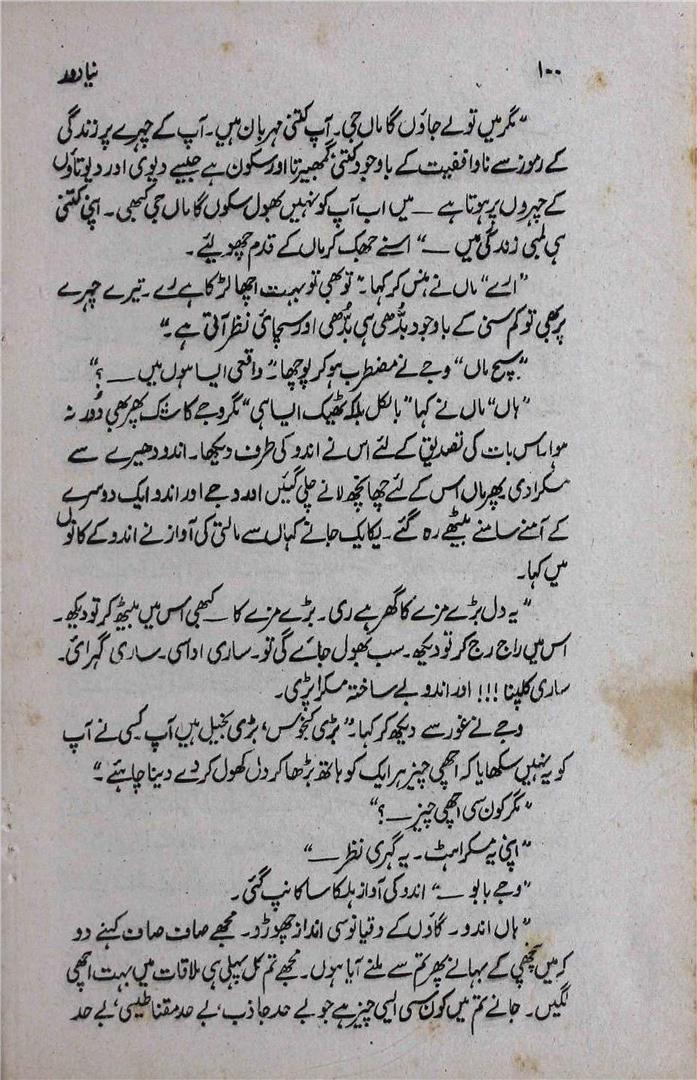 ۱۰۰
نیا دور
”مگر میں تولے جاؤں گا ماں جی۔ آپ کتنی مہربان ہیں۔ آپ کے چہرے پر زندگی
کے رموز سے ناواقفیت کے باوجود کتنی گمبھیرتا اور سکون ہے جیسے دیوی اور دیوتاؤں
کے چہروں پر ہوتا ہے ــ میں اب آپ کو نہیں بھول سکوں گا ماں جی کبھی۔ اپنی کتنی
ہی لمبی زندگی میں ــ“ اسنے جھک کر ماں کے قدم چھو لیے۔
”ارے“ ماں نے ہنس کر کہا۔ ”تو بھی تو بہت اچھا لڑکا ہے رے۔ تیرے چہرے
پر بھی تو کم سنی کے باوجود بدُّھی ہی بدُّھی اور سچائی نظر آتی ہے۔“
”سچ ماں“ وجے نے مضطرب ہو کر پوچھا۔ ”واقعی ایسا ہوں میں ــ ؟“
”ہاں“ ماں نے کہا ”بالکل بلکہ ٹھیک ایسا ہی“ مگر وجے کا شک پھر بھی دُور نہ
ہوا۔ اس بات کی تصدیق کے لئے اس نے اندو کی طرف دیکھا۔ اندو دھیرے سے
مسکرا دی پھر ماں اس کے لئے چھانچھ لانے چلی گئیں اور وجے اور اندو ایک دوسرے
کے آمنے سامنے بیٹھے رہ گئے۔ یکایک جانے کہاں سے مالتی کی آواز نے اندو کے کانوں
میں کہا۔
”یہ دل بڑے مزے کا گھر ہے ری۔ بڑے مزے کا ــ کبھی اس میں بیٹھ کر تو دیکھ۔
اس میں راج رج کر تو دیکھ۔ سب بھول جائے گی تو۔ ساری اداسی۔ ساری گہرائی۔
ساری کلپنا !!! اور اندو بے ساختہ مسکرا پڑی۔
وجے نے غور سے دیکھ کر کہا۔ ”بڑی کنجوس، بڑی بخیل ہیں آپ کسی نے آپ
کو یہ نہیں سکھایا کہ اچھی چیز ہر ایک کو ہاتھ بڑھا کر دل کھول کر دے دینا چاہئے۔“
”مگر کون سی اچھی چیز ــ ؟“
”اپنی یہ مسکراہٹ۔ یہ گہری نظر ــ“
”وجے بابو ــ“ اندو کی آواز ہلکا سا کانپ گئی۔
”ہاں اندو۔ گاؤں کے دقیانوسی انداز چھوڑو۔ مجھے صاف صاف کہنے دو
کہ میں پنچھی کے بہانے پھر تم سے ملنے آیا ہوں۔ مجھے تم کل پہلی ہی ملاقات میں بہت اچھی
لگیں۔ جانے تم میں کون سی ایسی چیز ہے جو بے حد جاذب، بے حد مقناطیسی، بے حد